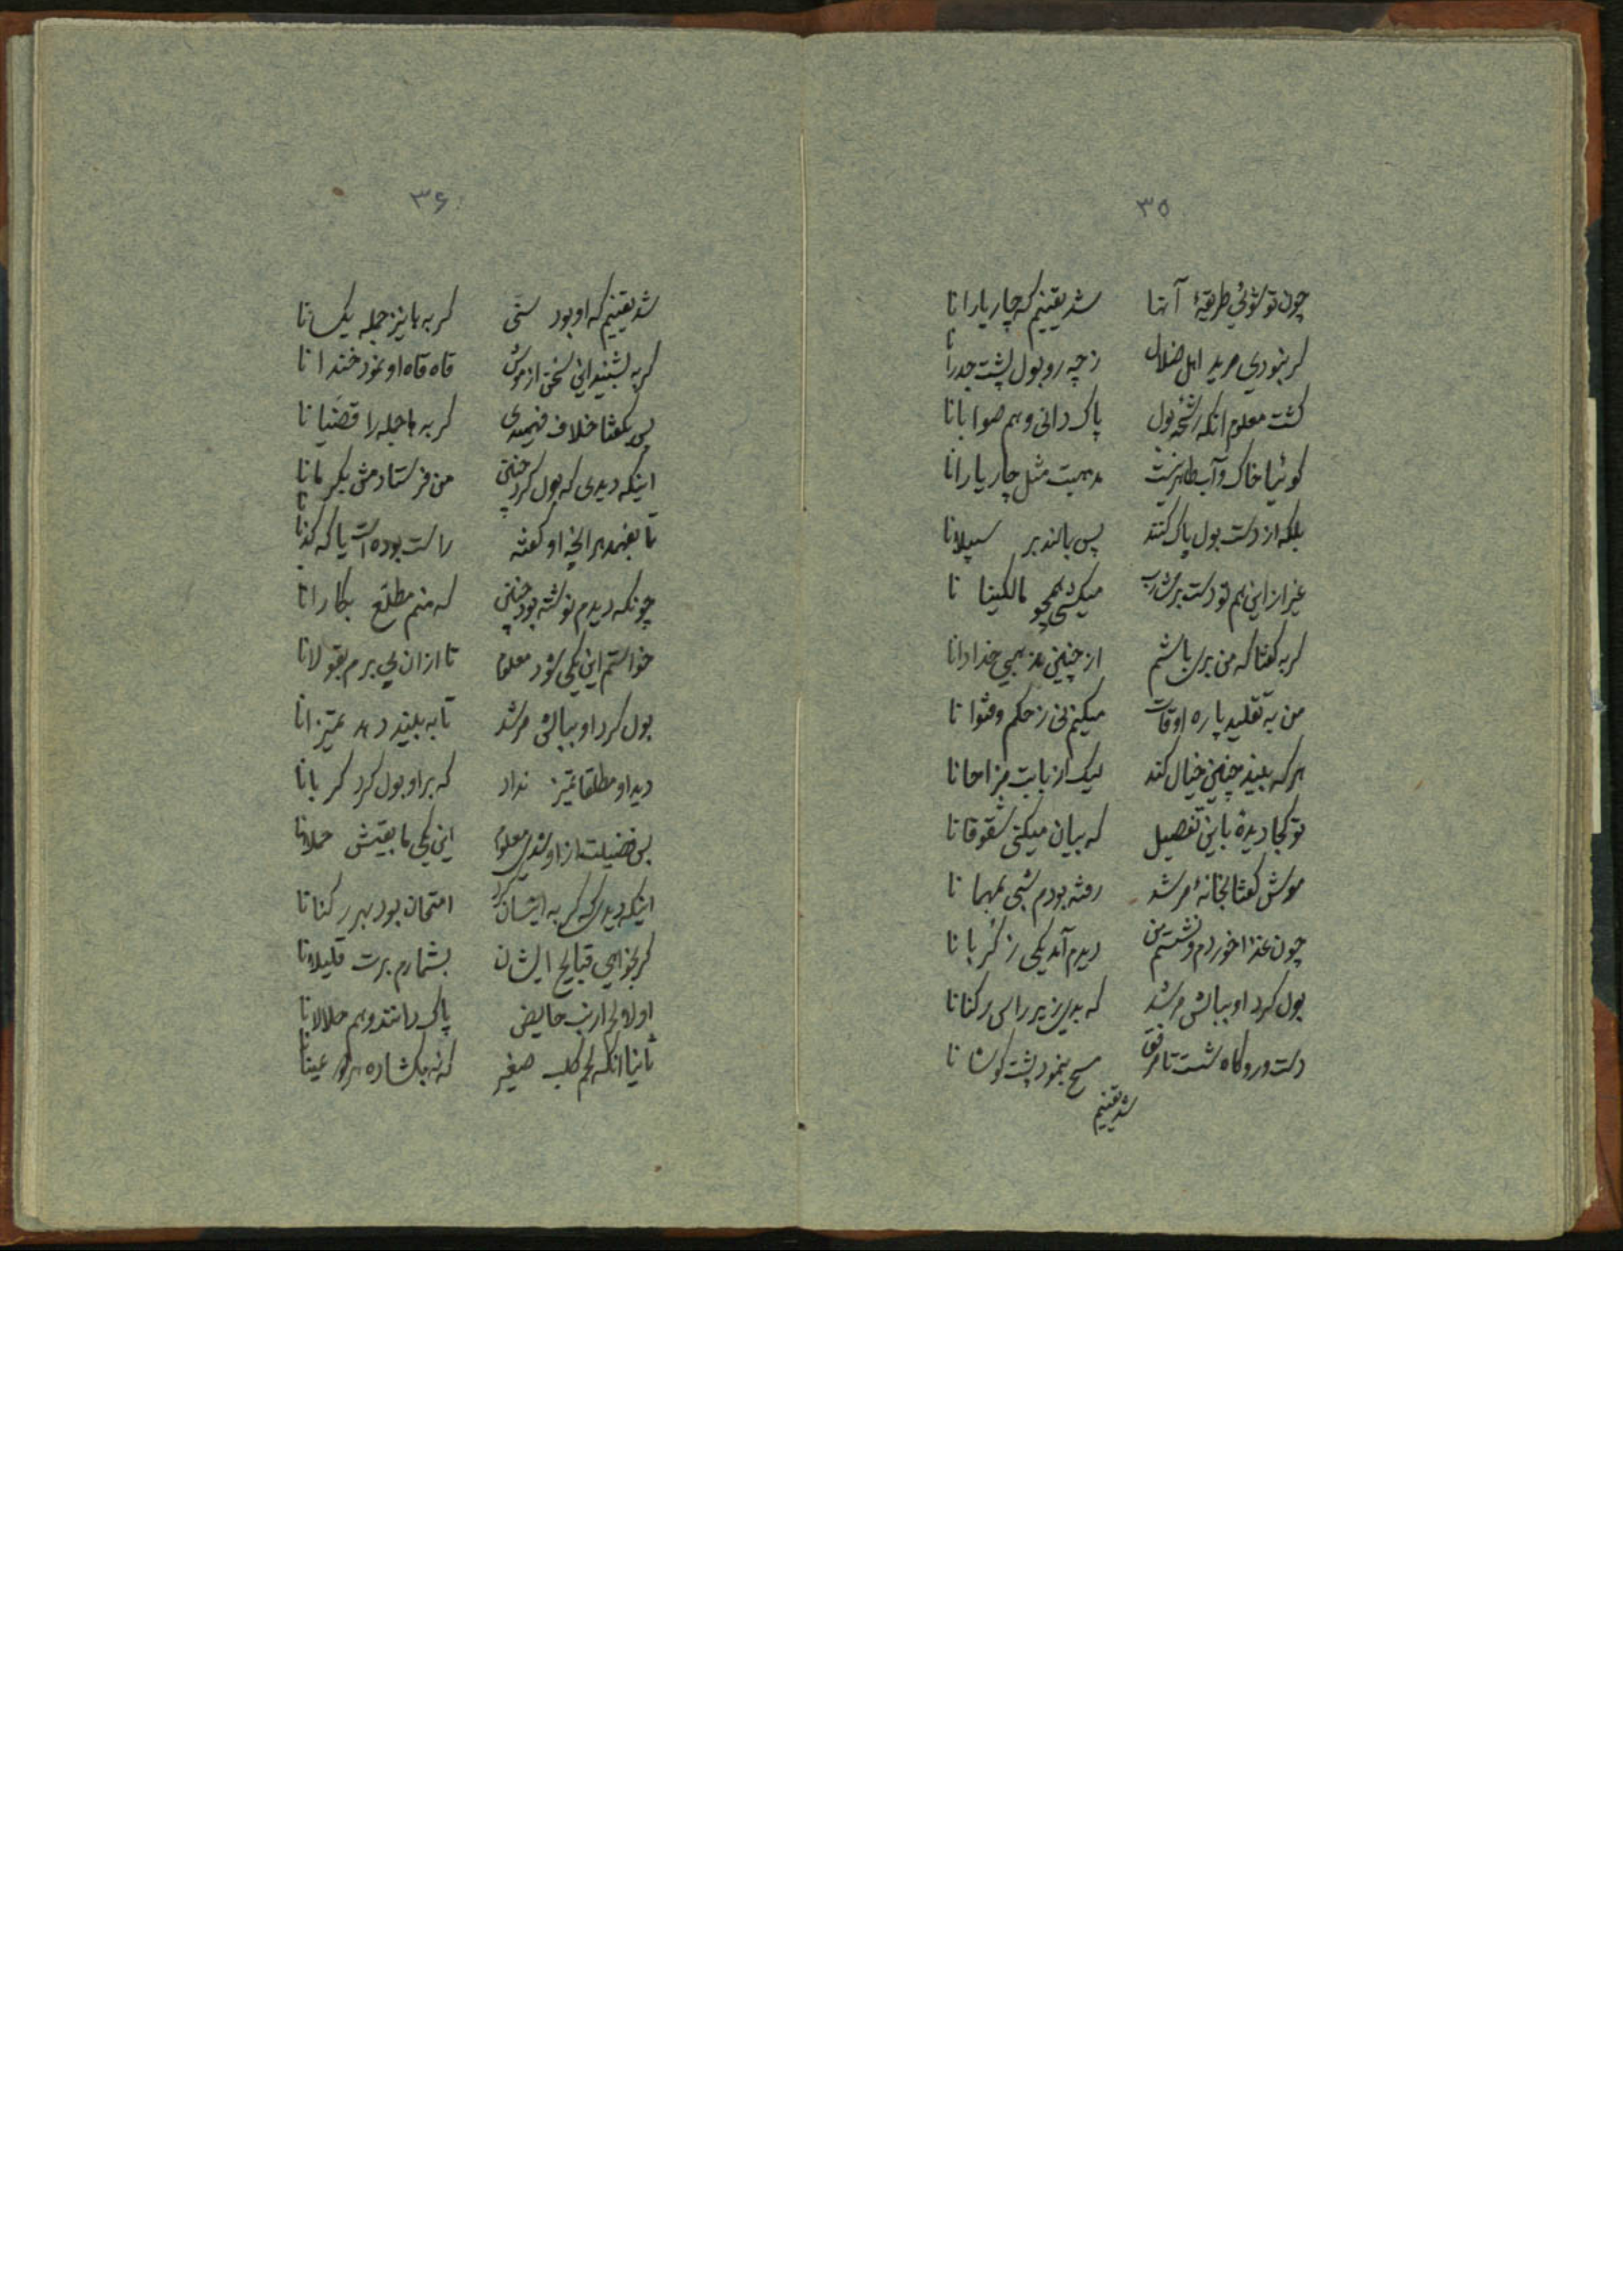 ۳۵
چون تو شوئی طریقهٔ آنها شد یقینم که چار یارانا
گر نبودی مرید اهل ضلال ز چه رو بول پشت جدرانا
گشت معلوم آنکه رشحه بول پاک دانی و هم صوابانا
گوئیا خاک و آب طاهر نیست مذهبت مثل چار یارانا
بلکه از دست بول پاک کنند پس بمالند بر سبیلانا
غیر از این هم تو دست بر شارب میکشی همچو مالکینا نا
گربه گفتا که من بری باشم از چنین مذهبی خدادانا
من به تقلید پاره اوقات میکنم نی ز حکم و فتوانا
هر که بیند چنین خیال کند لیک از بابت مزاحانا
تو کجا دیدهٔ باین تفصیل که بیان میکنی شقوقانا
موش گفتا بخانهٔ مرشد رفته بودم شبی بمهمانا
چون غذا خوردم و نشستم من دیدم آمد یکی ز گربانا
بول کرد او ببالش مرشد که بدی زیر راس رکنانا
دست و رو گاه شست تا مرفق مسح بنمود پشت گوشانا
شد یقینم
۳۶
شد یقینم که او بود سنّی گربه ها نیز جمله یکسانا
گربه بشنید این سخن از موش قاه قاه او نمود خندانا
پس بگفتا خلاف فهمیدی گربه ها جمله را قضیانا
اینکه دیدی که بول کرد چنین من فرستادمش بکرمانا
تا بفهمد هر آنچه او گفته راست بوده است یا که کذبانا
چونکه دیدم نوشته بود چنین که منم مطلع بکارانا
خواستم این یکی شود معلوم تا از آن پی برم بقولانا
بول کرد او ببالش مرشد تا به بیند دهد تمیزانا
دید او مطلقا تمیز نداد که بر او بول کرد گربانا
پس فضیلت از او شدی معلوم این یکی ما بقیش حملانا
اینکه دیدی که گربه اینسان کرد امتحان بود بهر رکنانا
گر بخواهی قبایح ایشان بشمارم برت قلیلانا
اولا لحم ارنب حایض پاک دانند و هم حلالانا
ثانیا آنکه لحم کلب صغیر که نه بگشاده هر دو عینانا